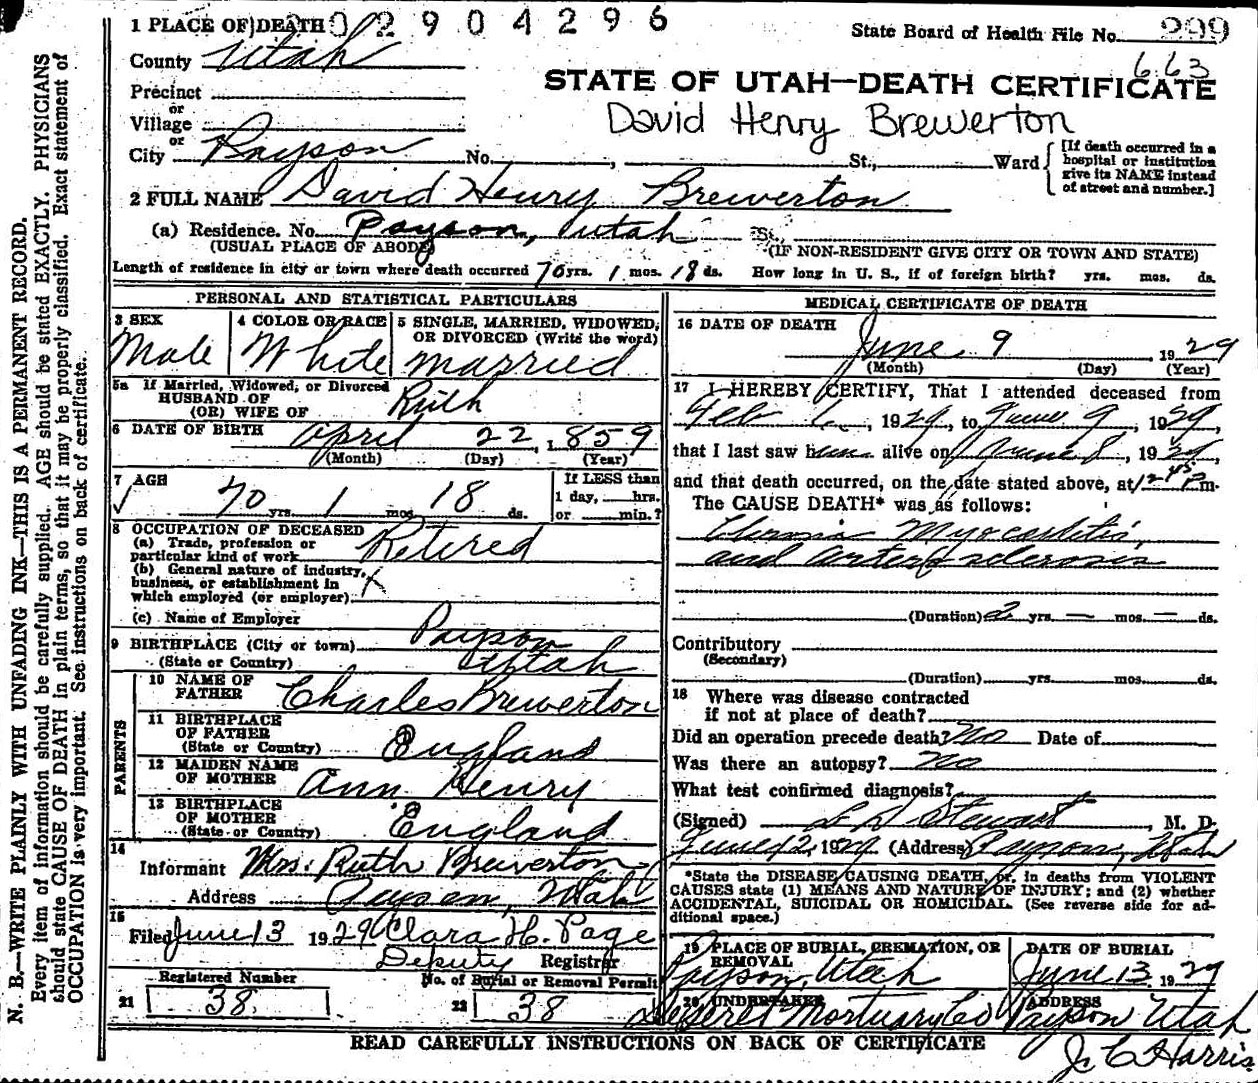 1 PLACE OF DEATH 02904296
State Board of Health File No. 299
County Utah
663
STATE OF UTAH—DEATH CERTIFICATE
Precinct
or
Village
David Henry Brewerton
or
City Payson No. , St., Ward
[If death occurred in a hospital or institution give its NAME instead of street and number.]
2 FULL NAME David Henry Brewerton
(a) Residence. No. Payson, Utah St.,
(USUAL PLACE OF ABODE) (IF NON-RESIDENT GIVE CITY OR TOWN AND STATE)
Length of residence in city or town where death occurred 70 yrs. 1 mos. 18 ds. How long in U. S., if of foreign birth? yrs. mos. ds.
PERSONAL AND STATISTICAL PARTICULARS
3 SEX Male
4 COLOR OR RACE White
5 SINGLE, MARRIED, WIDOWED, OR DIVORCED (Write the word) married
5a If Married, Widowed, or Divorced
HUSBAND OF
(OR) WIFE OF Ruth
6 DATE OF BIRTH April 22, 1859
(Month) (Day) (Year)
7 AGE 70 yrs. 1 mos. 18 ds.
If LESS than
1 day, hrs.
or min.?
8 OCCUPATION OF DECEASED
(a) Trade, profession or
particular kind of work Retired
(b) General nature of industry,
business, or establishment in
which employed (or employer)
(c) Name of Employer
9 BIRTHPLACE (City or town) Payson
(State or Country) Utah
PARENTS
10 NAME OF
FATHER Charles Brewerton
11 BIRTHPLACE
OF FATHER
(State or Country) England
12 MAIDEN NAME
OF MOTHER Ann Henry
13 BIRTHPLACE
OF MOTHER
(State or Country) England
14
Informant Mrs. Ruth Brewerton
Address Payson, Utah
15
Filed June 13 1929 Clara H. Page
Deputy Registrar
Registered Number
No. of Burial or Removal Permit
21 38
22 38
MEDICAL CERTIFICATE OF DEATH
16 DATE OF DEATH
June 9, 1929
(Month) (Day) (Year)
17 I HEREBY CERTIFY, That I attended deceased from
Feb 1, 1929, to June 9, 1929,
that I last saw him alive on June 8, 1929,
and that death occurred, on the date stated above, at 12 45 P m.
The CAUSE DEATH* was as follows:
Chronic Myocarditis,
and arteriosclerosis
(Duration) 2 yrs. — mos. — ds.
Contributory
(Secondary)
(Duration) yrs. mos. ds.
18 Where was disease contracted
if not at place of death?
Did an operation precede death? No Date of
Was there an autopsy? No
What test confirmed diagnosis?
(Signed) L D Stewart, M. D.
June 12, 1929 (Address) Payson, Utah
*State the DISEASE CAUSING DEATH, or, in deaths from VIOLENT
CAUSES state (1) MEANS AND NATURE OF INJURY; and (2) whether
ACCIDENTAL, SUICIDAL OR HOMICIDAL. (See reverse side for ad-
ditional space.)
19 PLACE OF BURIAL, CREMATION, OR
REMOVAL
Payson, Utah
DATE OF BURIAL
June 13, 1929
20 UNDERTAKER
Deseret Mortuary Co
ADDRESS
Payson Utah
READ CAREFULLY INSTRUCTIONS ON BACK OF CERTIFICATE
J. C. Harris
N. B.—WRITE PLAINLY WITH UNFADING INK—THIS IS A PERMANENT RECORD.
Every item of information should be carefully supplied. AGE should be stated EXACTLY. PHYSICIANS
should state CAUSE OF DEATH in plain terms, so that it may be properly classified. Exact statement of
OCCUPATION is very important. See instructions on back of certificate.